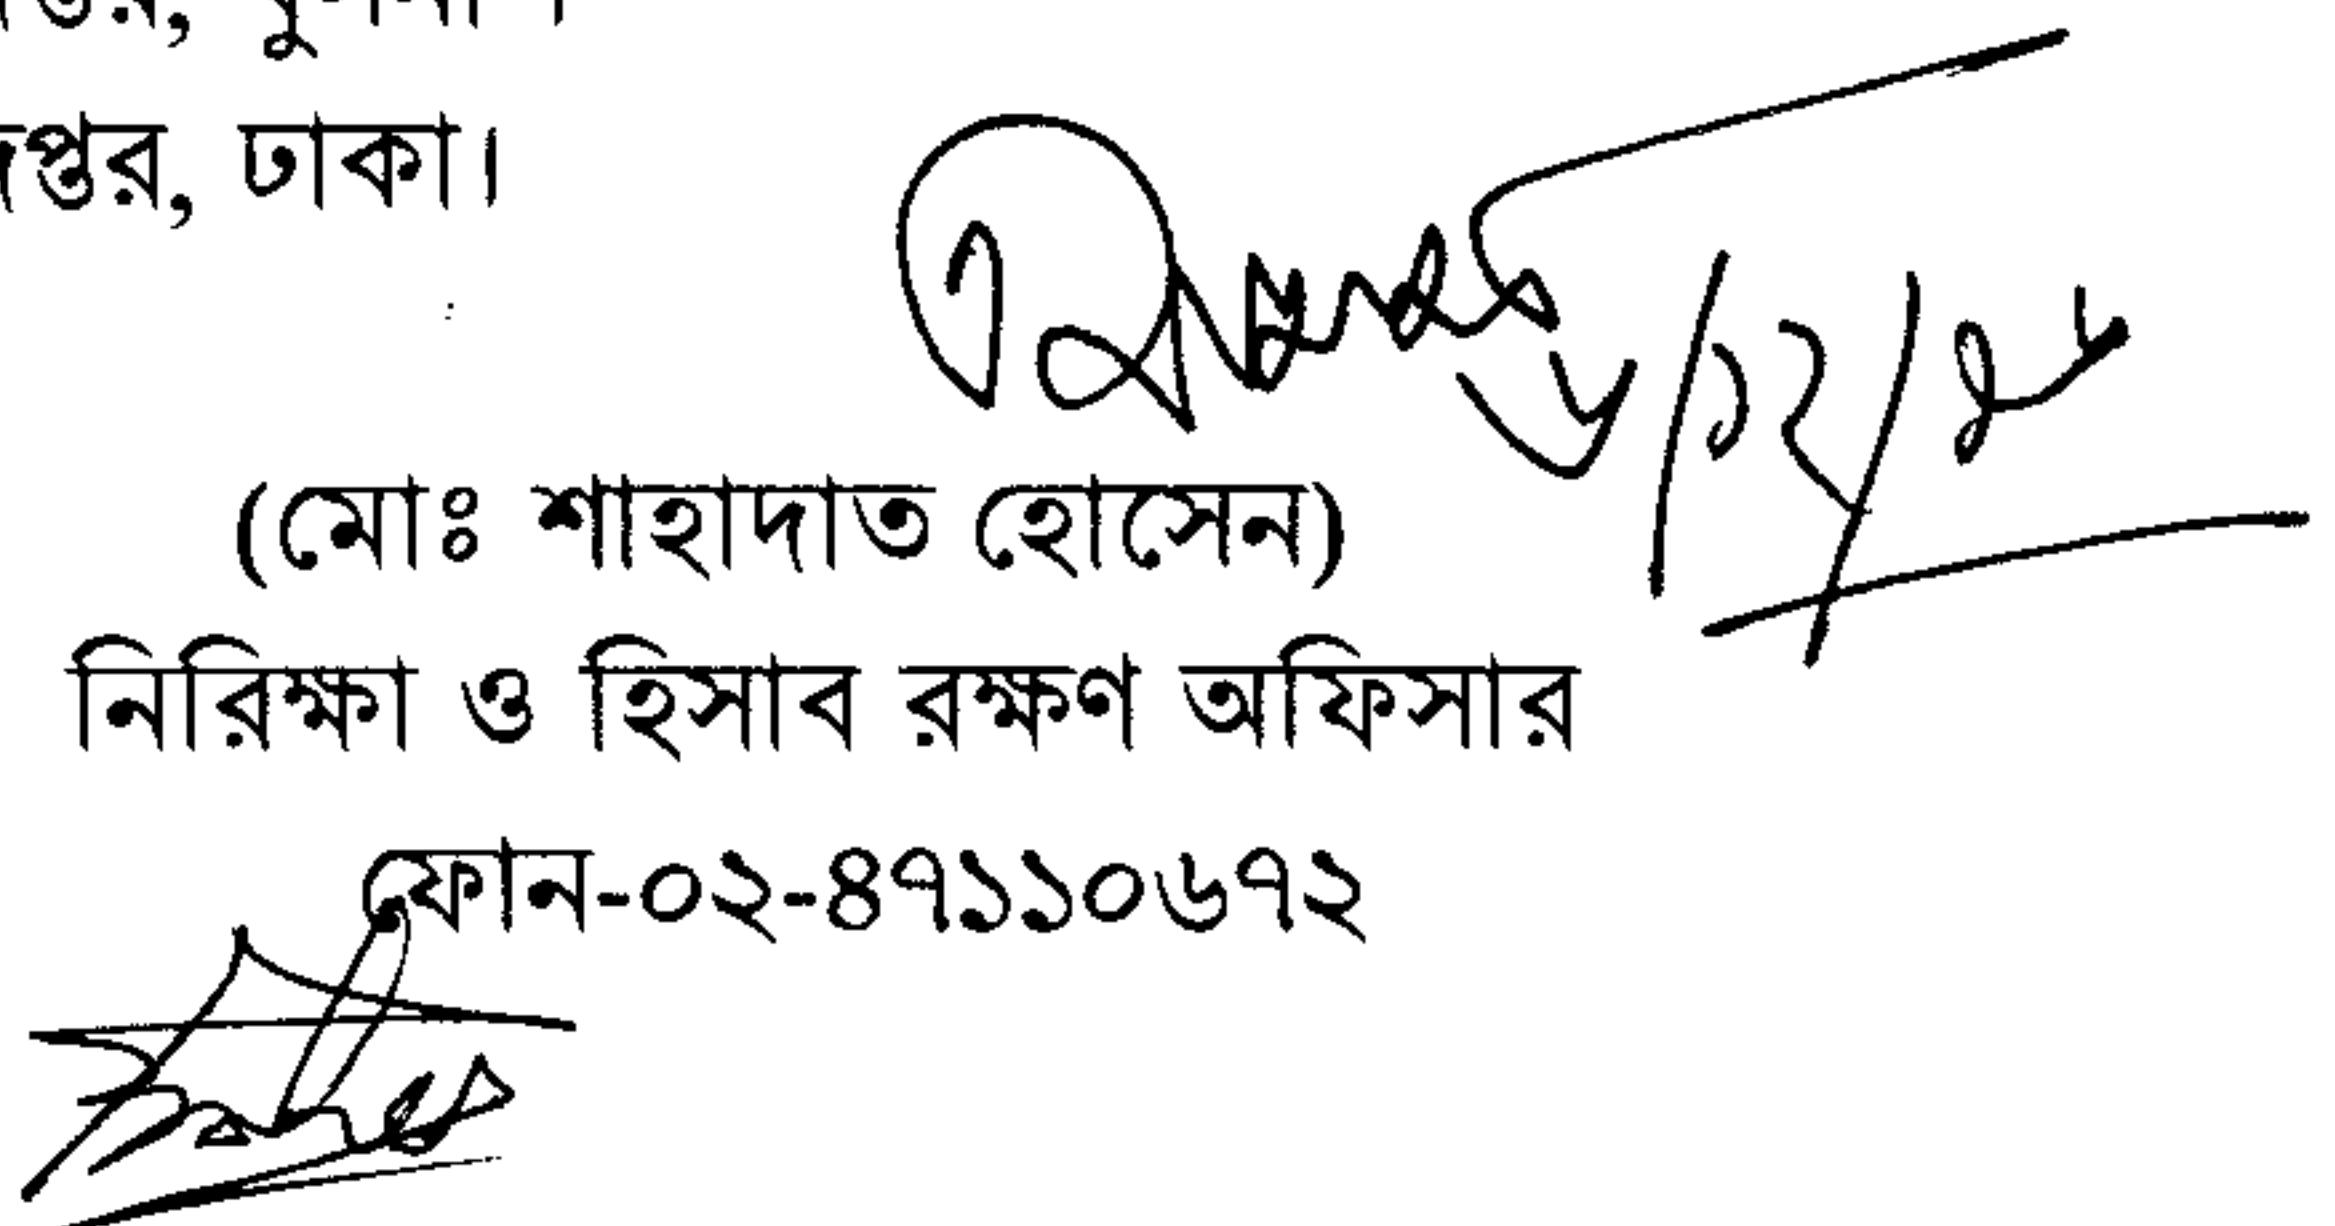 দপ্তর, ঢাকা।
(মোঃ শাহাদাত হোসেন)
নিরিক্ষা ও হিসাব রক্ষণ অফিসার
ফোন-০২-৪৭১১০৬৭২